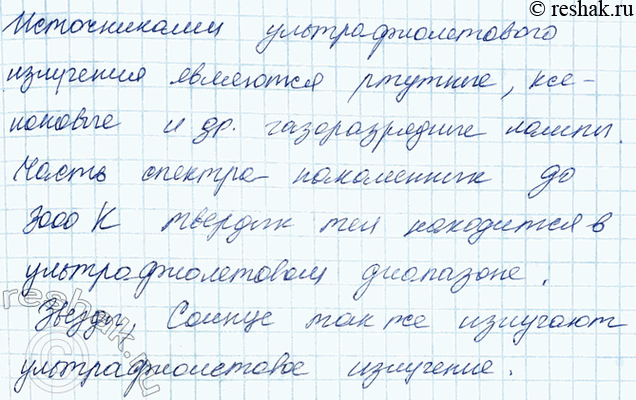 © reshak.ru
Источниками ультрафиолетового
излучения являются ртутные, ксе-
поновые и др. газоразрядные лампы.
Часть спектра накаленных до
3000 К твердых тел находится в
ультрафиолетовом диапазоне.
Звезды, Солнце так же излучают
ультрафиолетовое излучение.
© reshak.ru